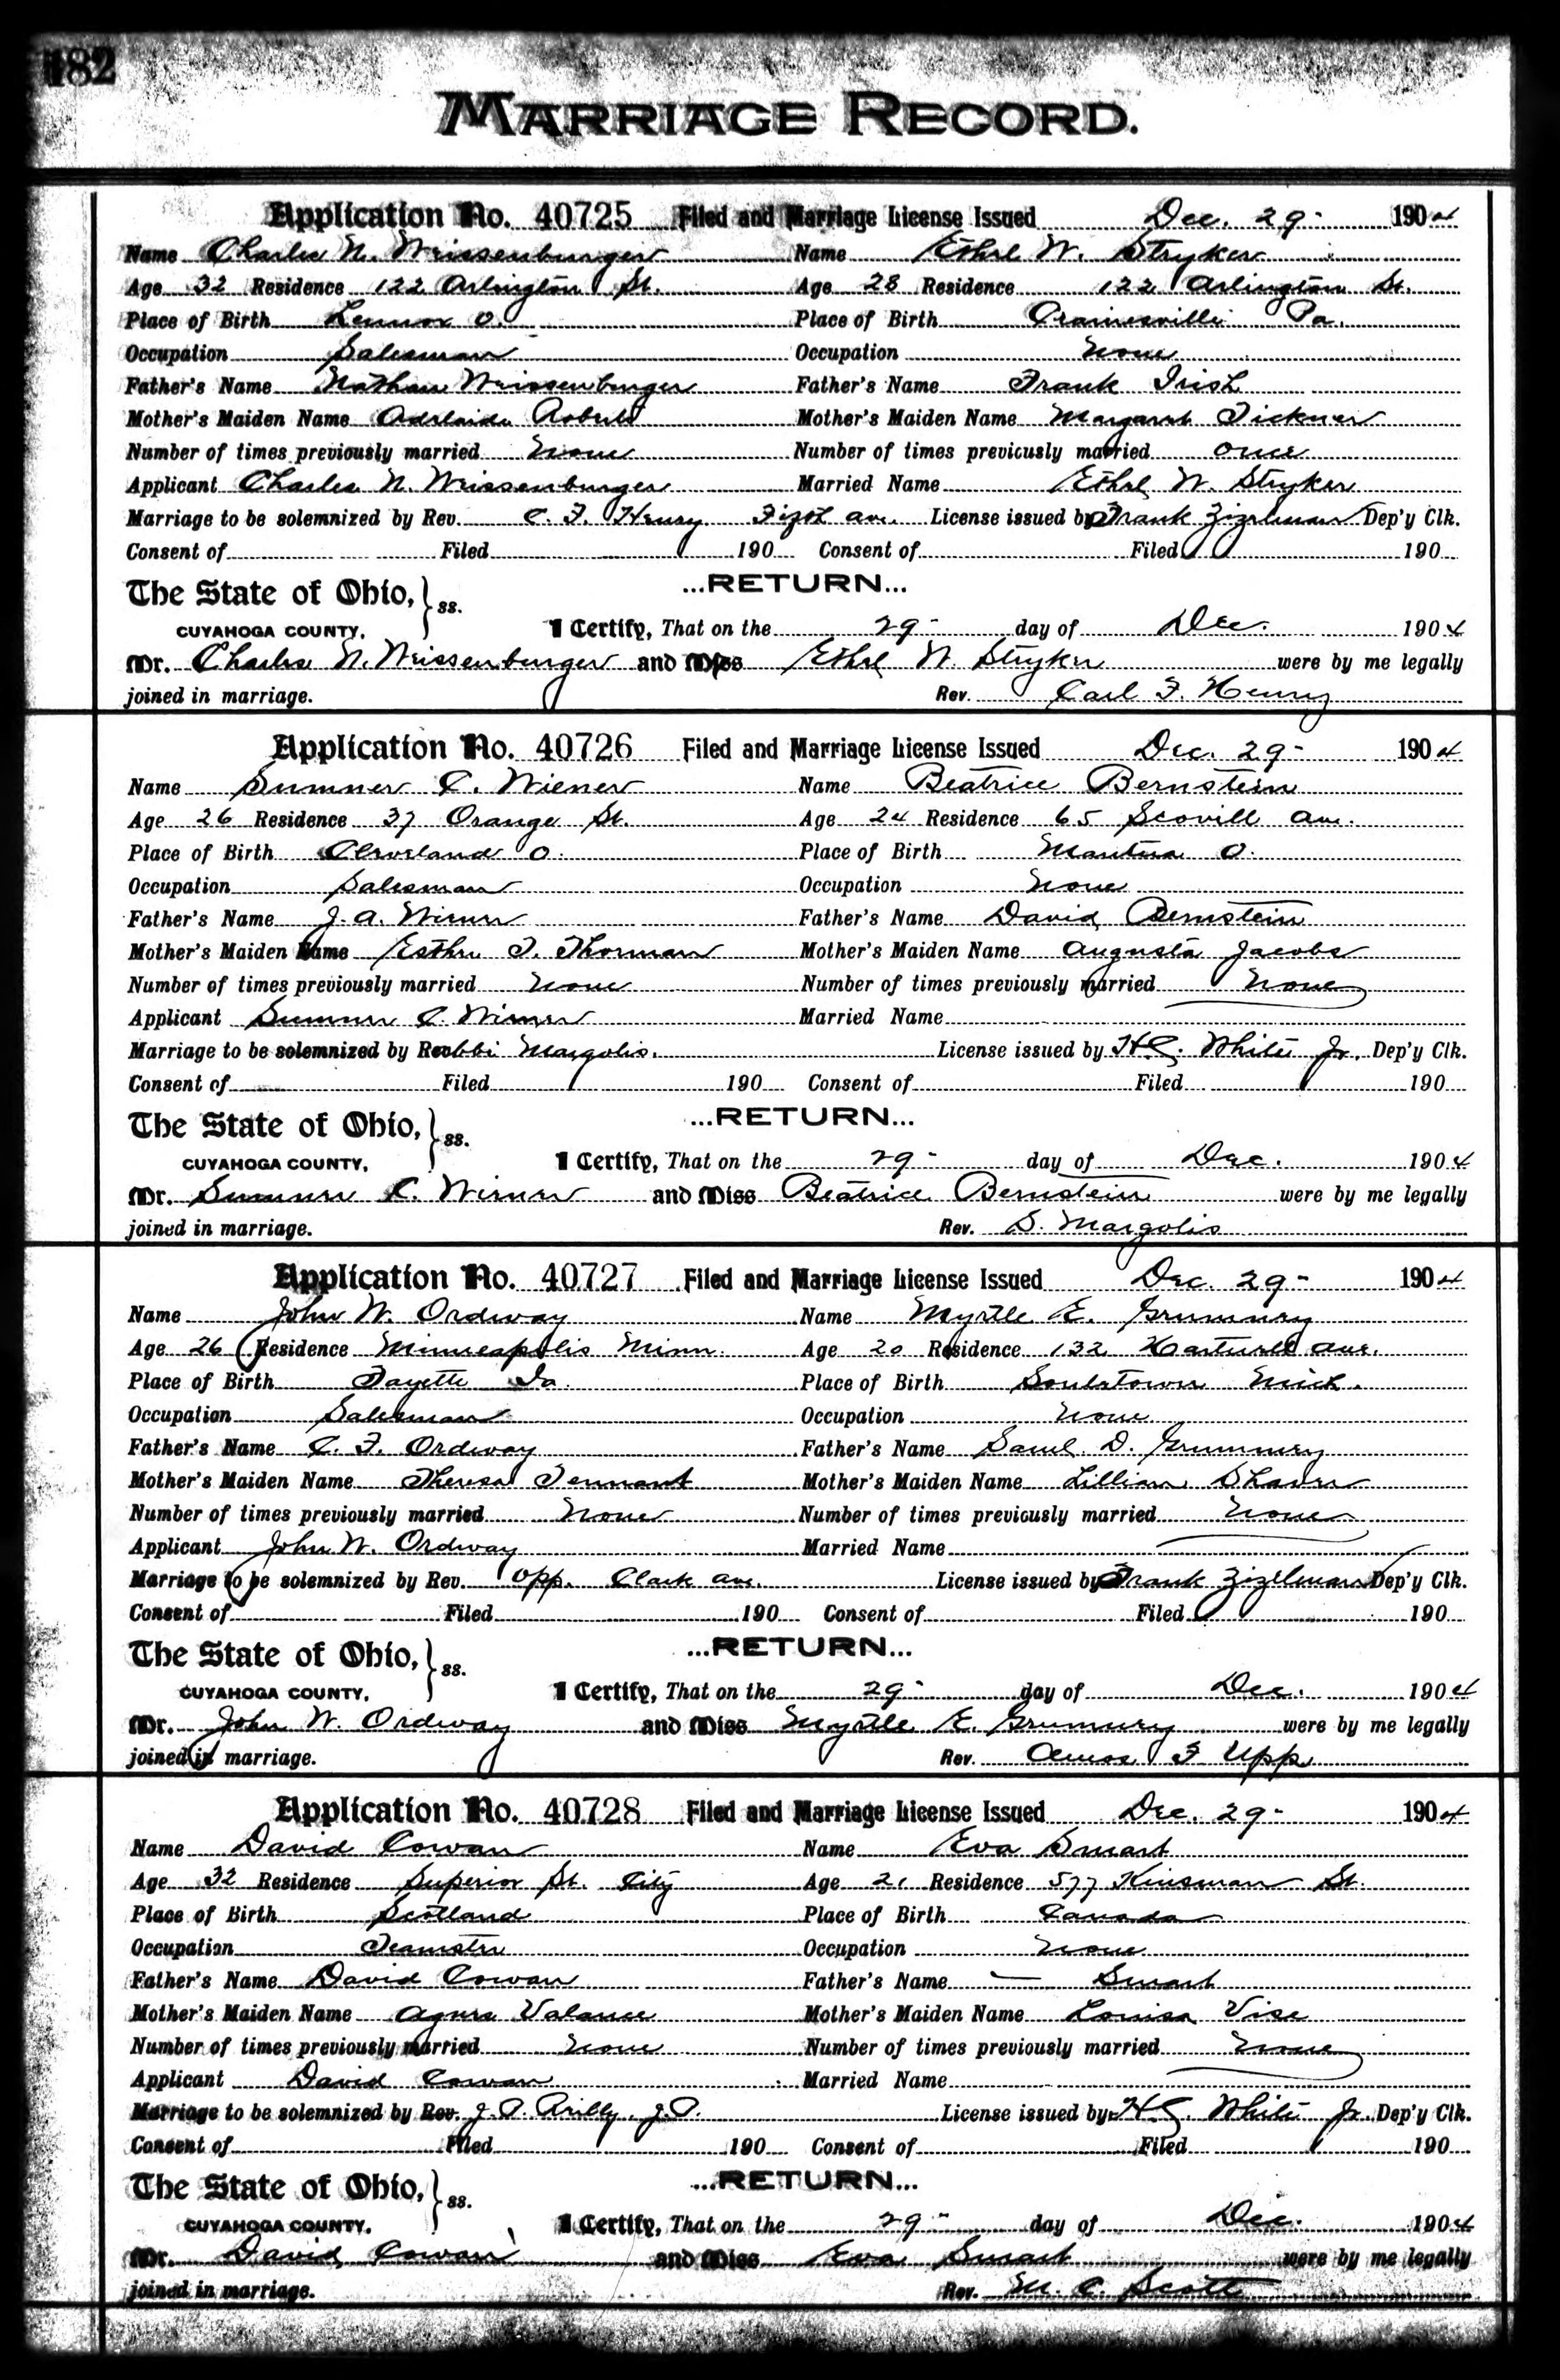 482
MARRIAGE RECORD.
Application No. 40725 Filed and Marriage License Issued Dec. 29- 1904
Name Charles N. Weissenburger Name Ethel W. Stryker
Age 32 Residence 122 Arlington St. Age 28 Residence 122 Arlington St.
Place of Birth Lennox O. Place of Birth Crainesville Pa.
Occupation Salesman Occupation None
Father's Name Nathan Weissenburger Father's Name Frank Irish
Mother's Maiden Name Adelaide Roberts Mother's Maiden Name Margaret Tickner
Number of times previously married None Number of times previously married once
Applicant Charles N. Weissenburger Married Name Ethel W. Stryker
Marriage to be solemnized by Rev. C. F. Henry ave. License issued by Frank Zizelman Dep'y Clk.
Consent of Filed 190 Consent of Filed 190
The State of Ohio, } ss. ...RETURN...
CUYAHOGA COUNTY, I Certify, That on the 29- day of Dec. 1904
Mr. Charles N. Weissenburger and Miss Ethel W. Stryker were by me legally
joined in marriage. Rev. Carl F. Henry
Application No. 40726 Filed and Marriage License Issued Dec. 29- 1904
Name Sumner C. Wiener Name Beatrice Bernstein
Age 26 Residence 37 Orange St. Age 24 Residence 65 Scovill ave.
Place of Birth Cleveland O. Place of Birth Mantua O.
Occupation Salesman Occupation None
Father's Name J. A. Wiener Father's Name David Bernstein
Mother's Maiden Name Esther T. Thorman Mother's Maiden Name Augusta Jacobs
Number of times previously married None Number of times previously married None
Applicant Sumner C. Wiener Married Name
Marriage to be solemnized by Rabbi Margolis. License issued by H.C. White Jr. Dep'y Clk.
Consent of Filed 190 Consent of Filed 190
The State of Ohio, } ss. ...RETURN...
CUYAHOGA COUNTY, I Certify, That on the 29- day of Dec. 1904
Mr. Sumner C. Wiener and Miss Beatrice Bernstein were by me legally
joined in marriage. Rev. S. Margolis
Application No. 40727 Filed and Marriage License Issued Dec. 29- 1904
Name John W. Ordway Name Myrtle E. Grummery
Age 26 Residence Minneapolis Minn. Age 20 Residence 132 ave.
Place of Birth Fayette Ia. Place of Birth Mich.
Occupation Salesman Occupation None
Father's Name C. F. Ordway Father's Name Saml. D. Grummery
Mother's Maiden Name Theresa Tennant Mother's Maiden Name Lillian Shaver
Number of times previously married None Number of times previously married None
Applicant John W. Ordway Married Name
Marriage to be solemnized by Rev. Upp. Clark ave. License issued by Frank Zizelman Dep'y Clk.
Consent of Filed 190 Consent of Filed 190
The State of Ohio, } ss. ...RETURN...
CUYAHOGA COUNTY, I Certify, That on the 29- day of Dec. 1904
Mr. John W. Ordway and Miss Myrtle E. Grummery were by me legally
joined in marriage. Rev. Amos F Upp
Application No. 40728 Filed and Marriage License Issued Dec. 29- 1904
Name David Cowan Name Eva Smart
Age 32 Residence Superior St. City Age 21 Residence 577 Kinsman St.
Place of Birth Scotland Place of Birth Canada
Occupation Teamster Occupation None
Father's Name David Cowan Father's Name — Smart
Mother's Maiden Name Agnes Valance Mother's Maiden Name Louisa Vise
Number of times previously married None Number of times previously married None
Applicant David Cowan Married Name
Marriage to be solemnized by Rev. J. P. J.P. License issued by H.C. White Jr. Dep'y Clk.
Consent of Filed 190 Consent of Filed 190
The State of Ohio, } ss. ...RETURN...
CUYAHOGA COUNTY, I Certify, That on the 29- day of Dec. 1904
Mr. David Cowan and Miss Eva Smart were by me legally
joined in marriage. Rev. M. C. Scott